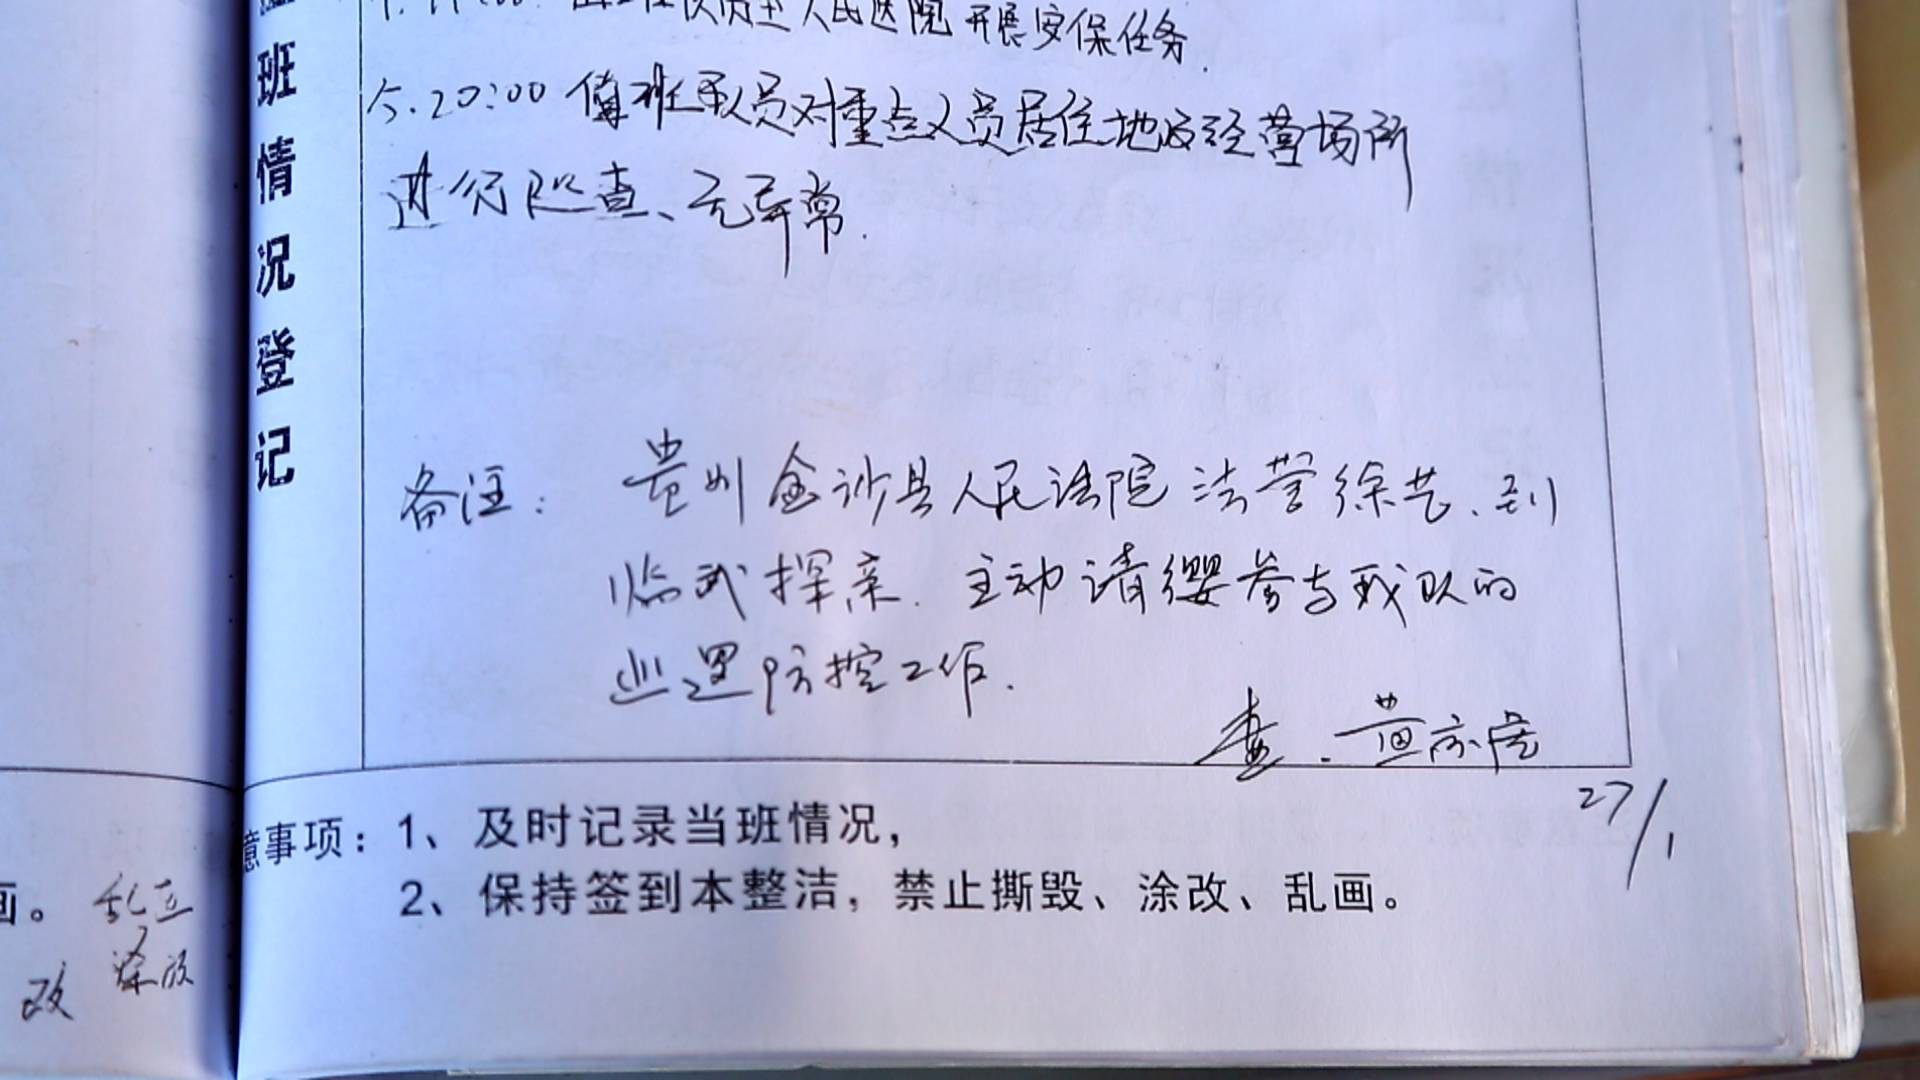 班情况登记
人民医院开展安保任务.
5.20:00 值班队员对重点人员居住地及经营场所
进行巡查、无异常.
备注: 贵州金沙县人民法院法警徐艺、到
临武探亲. 主动请缨参与我队的
巡逻防控工作.
查. 黄
27/1
意事项：1、及时记录当班情况，
2、保持签到本整洁，禁止撕毁、涂改、乱画。
画。
改